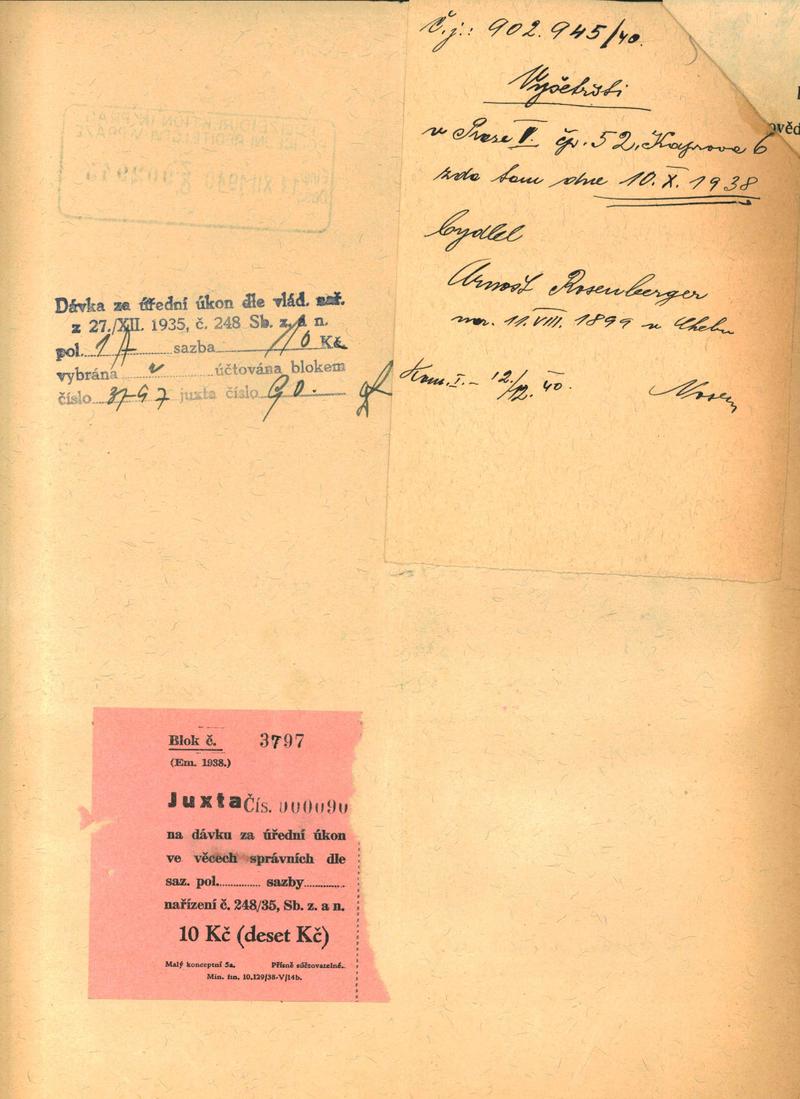 Č.j.: 902.945/40.
Vyšetřiti
v Praze V. čp. 52, Kaprova 6
zda tam dne 10. X. 1938
bydlel
Arnošt Rosenberger
nar. 11. VIII. 1899 v Chebu
Kom. I. - 12./12. 40.
ověd
POLIZEIDIREKTION IN PRAG
ŘEDITELSTVÍ V PRAZE
XII 1940
Dávka za úřední úkon dle vlád. nař.
z 27./XII. 1935, č. 248 Sb. z. a n.
pol. 1 A sazba 10 Kč
vybrána v účtována blokem
číslo 3797 juxta číslo 90.
Blok č. 3797
(Em. 1938.)
Juxta Čís. 000090
na dávku za úřední úkon
ve věcech správních dle
saz. pol. sazby
nařízení č. 248/35, Sb. z. a n.
10 Kč (deset Kč)
Malý konceptní 5a. Přísně súčtovatelné.
Min. fin. 10.129/38-V/14b.